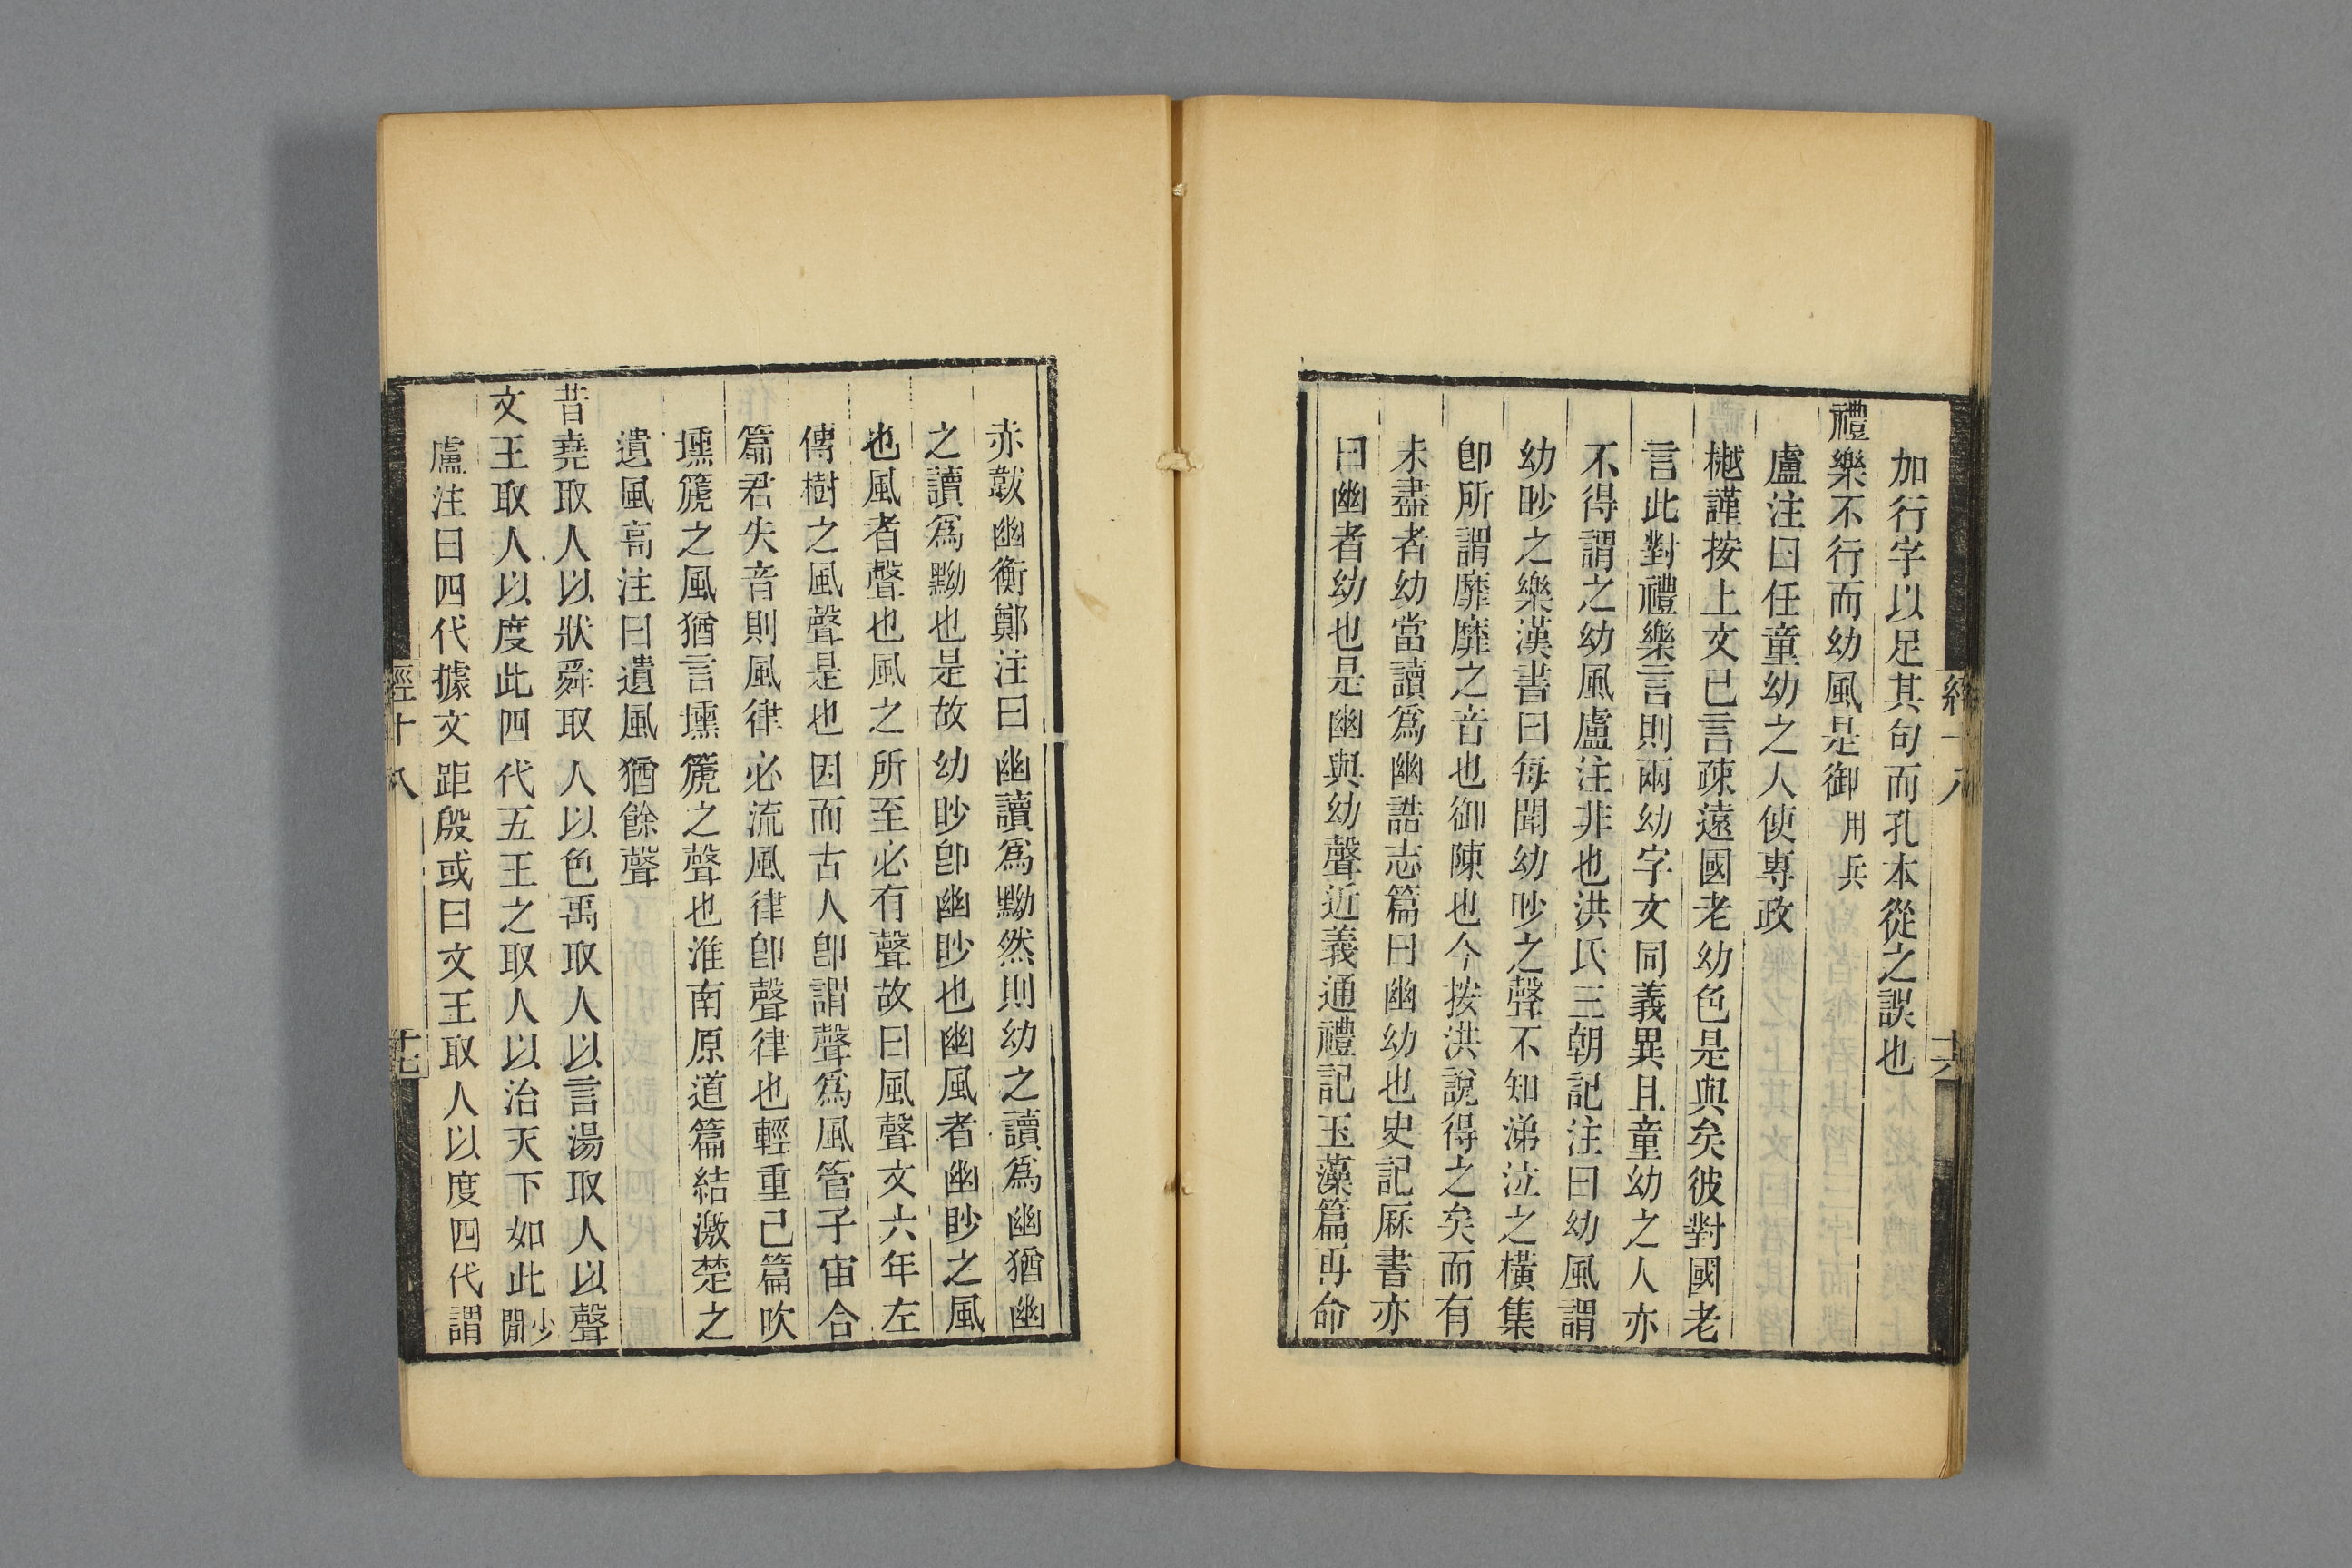 加行字以足其句而孔本從之誤也
禮樂不行而幼風是御用兵
盧注曰任童幼之人使專政
樾謹按上文已言疎遠國老幼色是與矣彼對國老
言此對禮樂言則兩幼字文同義異且童幼之人亦
不得謂之幼風盧注非也洪氏三朝記注曰幼風謂
幼眇之樂漢書曰每聞幼眇之聲不知涕泣之橫集
卽所謂靡靡之音也御陳也今按洪說得之矣而有
未盡者幼當讀爲幽誥志篇曰幽幼也史記厤書亦
曰幽者幼也是幽與幼聲近義通禮記玉藻篇再命
赤韍幽衡鄭注曰幽讀爲黝然則幼之讀爲幽猶幽
之讀爲黝也是故幼眇卽幽眇也幽風者幽眇之風
也風者聲也風之所至必有聲故曰風聲文六年左
傳樹之風聲是也因而古人卽謂聲爲風管子宙合
篇君失音則風律必流風律卽聲律也輕重己篇吹
壎篪之風猶言壎篪之聲也淮南原道篇結激楚之
遺風高注曰遺風猶餘聲
昔堯取人以狀舜取人以色禹取人以言湯取人以聲
文王取人以度此四代五王之取人以治天下如此少閒
盧注曰四代據文距殷或曰文王取人以度四代謂
經十八
十六
經十八
十七